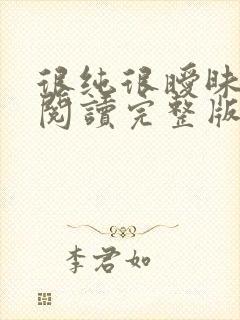 很纯很曖昧
閱讀完整版
李君如